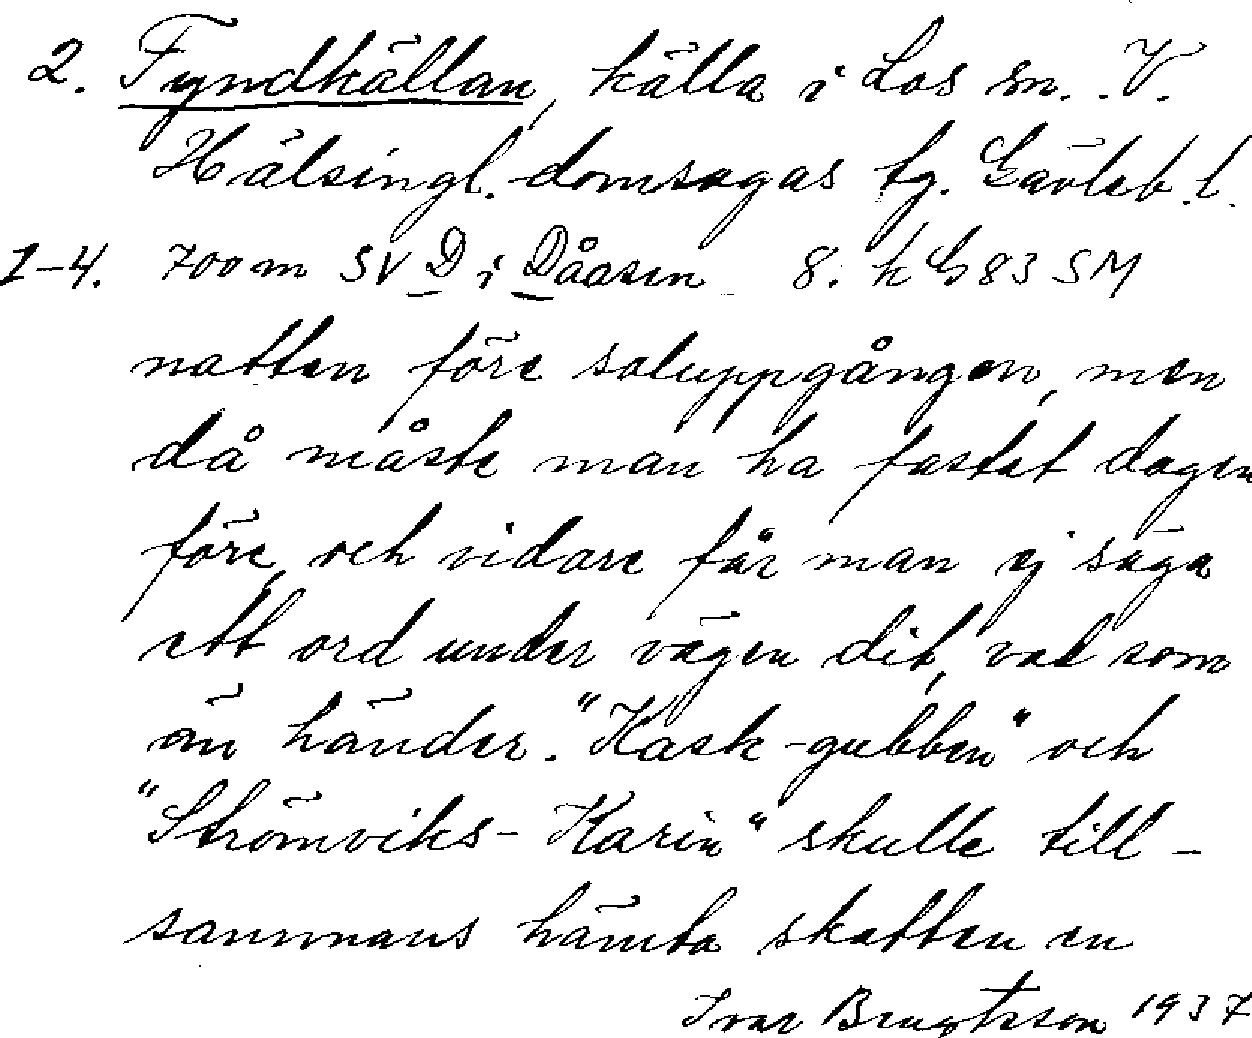 2. Fyndkällan, källa i Los sn. V.
Hälsingl. domsagas tg. Gävleb. l.
1-4. 700 m SV D i Dåasen 8. k G 83 SM
natten före soluppgången, men
då måste man ha fastat dagen
före, och vidare får man ej säga
ett ord under vägen dit, vad som
än händer. "Kask-gubben" och
"Strömviks-Karin" skulle till-
sammans hämta skatten en
Ivar Bengtsson 1937